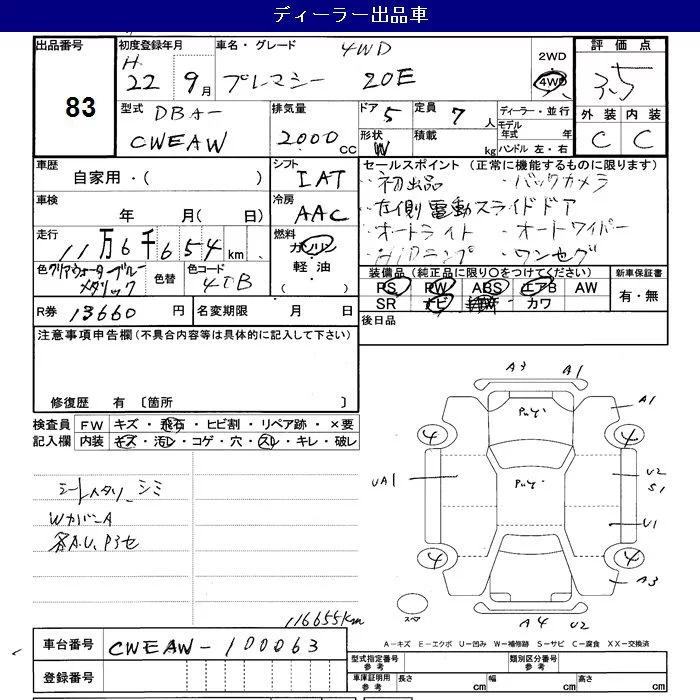 ディーラー出品車
出品番号
83
初度登録年月
H
22 9月
車名・グレード 4WD
プレマシー 20E
2WD
4WD
評価点
3.5
型式 DBA-
CWEAW
排気量
2000 CC
ドア 5
定員 7人
形状 W
積載 kg
ディーラー・並行
モデル
年式 年
ハンドル 左・右
外装 内装
C C
車歴
自家用・( )
車検
年 月( 日)
シフト
IAT
冷房
AAC
セールスポイント (正常に機能するものに限ります)
・初出品 ・バックカメラ
・左側電動スライドドア
・オートライト ・オートワイパー
・HIDランプ ・ワンセグ
走行
11万6千654km
燃料
ガソリン
軽油・
( )
色 クリアウォーターブルー
メタリック
色替
色コード
40B
装備品 (純正品に限り○をつけてください)
新車保証書
PS PW ABS エアB AW
SR ナビ カワ
有・無
R券 13660円
名変期限 月 日
後日品
注意事項申告欄(不具合内容等は具体的に記入して下さい)
修復歴 有 〔箇所 〕
検査員 FW キズ・飛石・ヒビ割・リペア跡・×要
記入欄 内装 キズ・汚レ・コゲ・穴・スレ・キレ・破レ
シートスタリ、シミ
WカバーA
各A.U、P3セ
116655km
A3 A1
A1
4 4
UA1
U2
S1
U1
4 4
A3
スペア
A4 U2
A-キズ E-エクボ U-凹み W-補修跡 S-サビ C-腐食 XX-交換済
車台番号 CWEAW-100063
登録番号
型式指定番号
参考
類別区分番号
参考
車庫証明用
参考
長さ cm
幅 cm
高さ cm